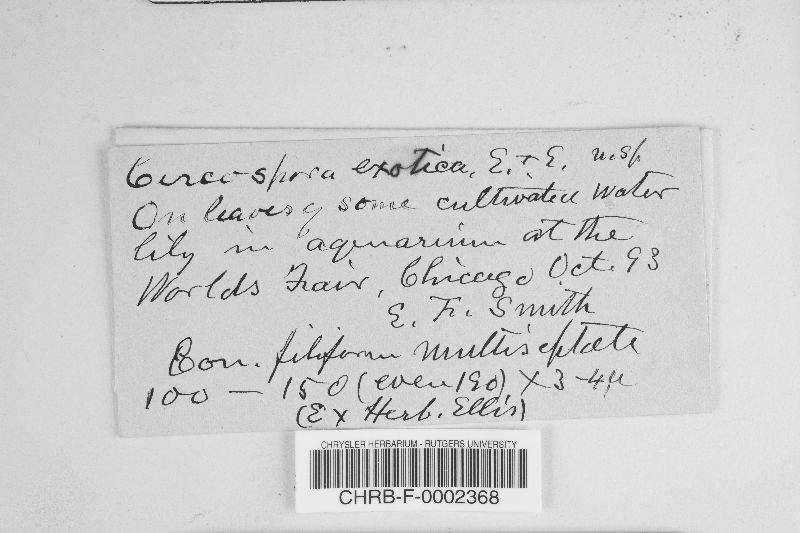 Cercospora exotica, E. + E. n. sp
On leaves of some cultivated water
lily in aquarium at the
Worlds Fair, Chicago Oct. 93
E. F. Smith
Con. filiform multiseptate
100 — 150 (even 190) X 3-4µ
(Ex Herb. Ellis)
CHRYSLER HERBARIUM - RUTGERS UNIVERSITY
CHRB-F-0002368